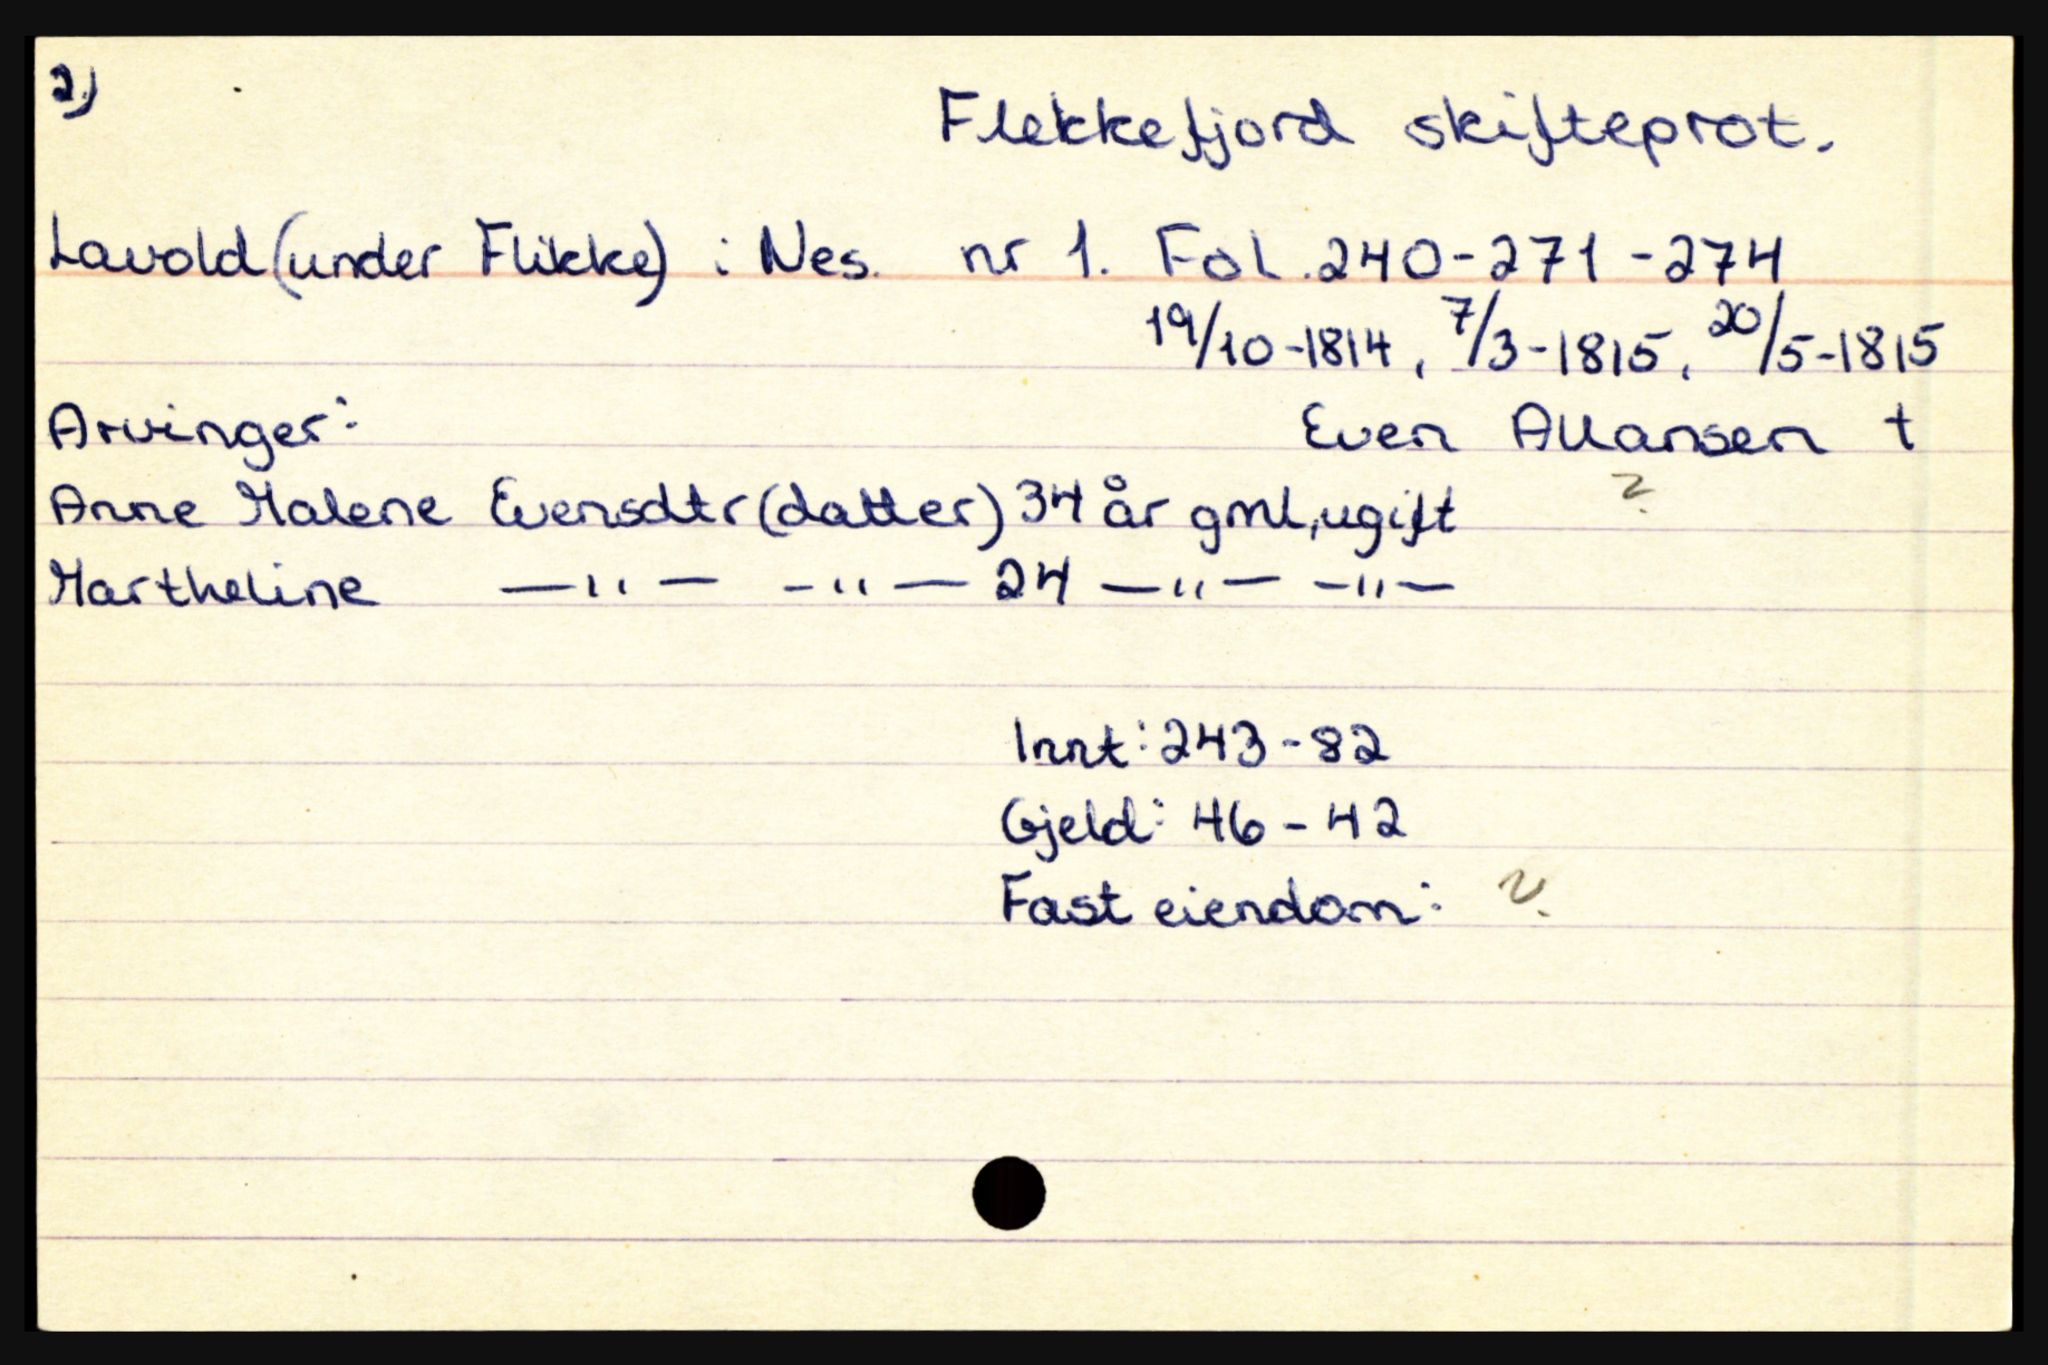 2)
Flekkefjord skifteprot.
Lavold (under Flikke) i Nes. nr 1. Fol. 240-271-274
19/10-1814, 7/3-1815, 20/5-1815
Arvinger: Even Allansen †
Anne Malene Evensdtr (datter) 34 år gml, ugift ?
Martheline —"— -"— 24 —"— -"—
Innt: 243-82
Gjeld: 46-42
Fast eiendom: ?